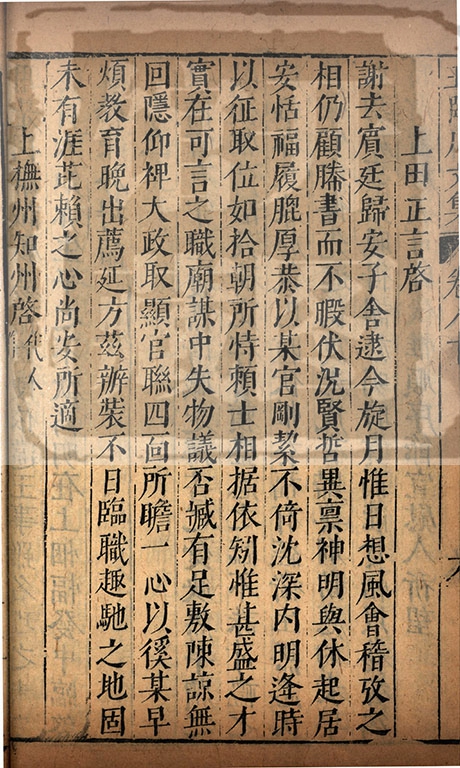 臨川文集 卷八十
上田正言啓
謝去賓廷歸安子舍逮今旋月惟日想風會稽攷之
相仍顧騰書而不暇伏況賢哲異禀神明與休起居
安恬福履膍厚恭以某官剛絜不倚沈深内明逢時
以征取位如拾朝所恃賴士相据依矧惟甚盛之才
實在可言之職廟謀中失物議否臧有足敷陳諒無
回隱仰裨大政取顯官聯四向所瞻一心以徯某早
煩教育晚出薦延方茲辦裝不日臨職趣馳之地固
未有涯芘賴之心尚安所適
上撫州知州啓代人